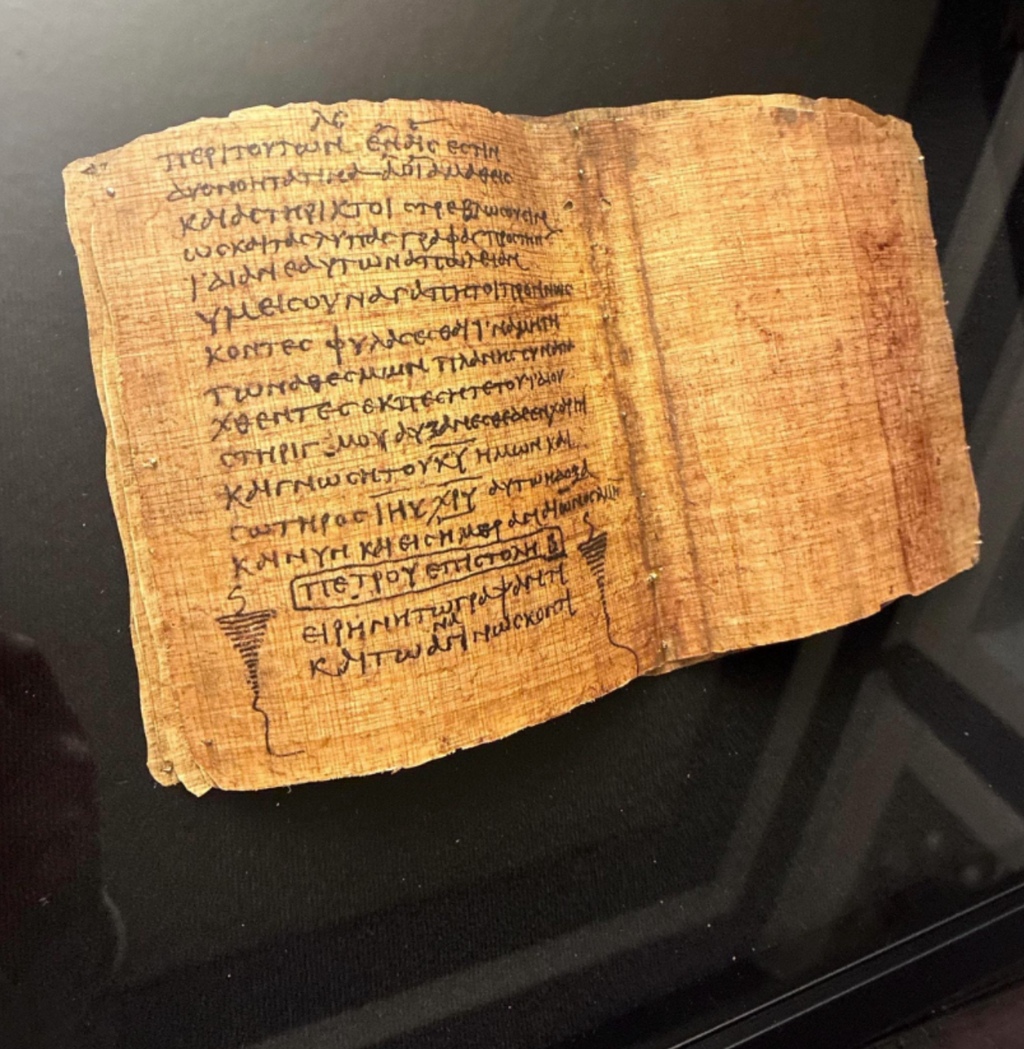 ΛϚ
ΠΕΡΙ ΤΟΥΤΩΝ ΕΝ ΑΙϹ ΕϹΤΙΝ
ΔΥϹΝΟΗΤΑ ΤΙΝΑ Α ΟΙ ΑΜΑΘΕΙϹ
ΚΑΙ ΑϹΤΗΡΙΧΤΟΙ ϹΤΡΕΒΛΩϹΟΥϹΙΝ
ΩϹ ΚΑΙ ΤΑϹ ΛΥΠΑϹ ΓΡΑΦΑϹ ΠΡΟϹ ΤΗΝ
ΙΔΙΑΝ ΕΑΥΤΩΝ ΑΠΩΛΕΙΑΝ
ΥΜΕΙϹ ΟΥΝ ΑΓΑΠΗΤΟΙ ΠΡΟΓΙΝΩϹ
ΚΟΝΤΕϹ ΦΥΛΑϹΕϹΘΑΙ ΙΝΑ ΜΗ ΤΗ
ΤΩΝ ΑΘΕϹΜΩΝ ΠΛΑΝΗ ϹΥΝΑΠΑ
ΧΘΕΝΤΕϹ ΕΚΠΕϹΗΤΕ ΤΟΥ ΙΔΙΟΥ
ϹΤΗΡΙΓΜΟΥ ΑΥΞΑΝΕϹΘΕ ΔΕ ΕΝ ΧΑΡΙΤΙ
ΚΑΙ ΓΝΩϹΗ ΤΟΥ ΚΥ ΗΜΩΝ ΚΑΙ
ϹΩΤΗΡΟϹ ΙΗΥ ΧΡΥ ΑΥΤΩ Η ΔΟΞΑ
ΚΑΙ ΝΥΝ ΚΑΙ ΕΙϹ ΗΜΕΡΑΝ ΑΙΩΝΟϹ ΑΜΗΝ
ΠΕΤΡΟΥ ΕΠΙϹΤΟΛΗ Β
ΕΙΡΗΝΗ ΤΩ ΓΡΑΨΑΝΤΙ
ΚΑΙ ΤΩ ΑΝΑΓΙΝΩϹΚΟΝΤΙ